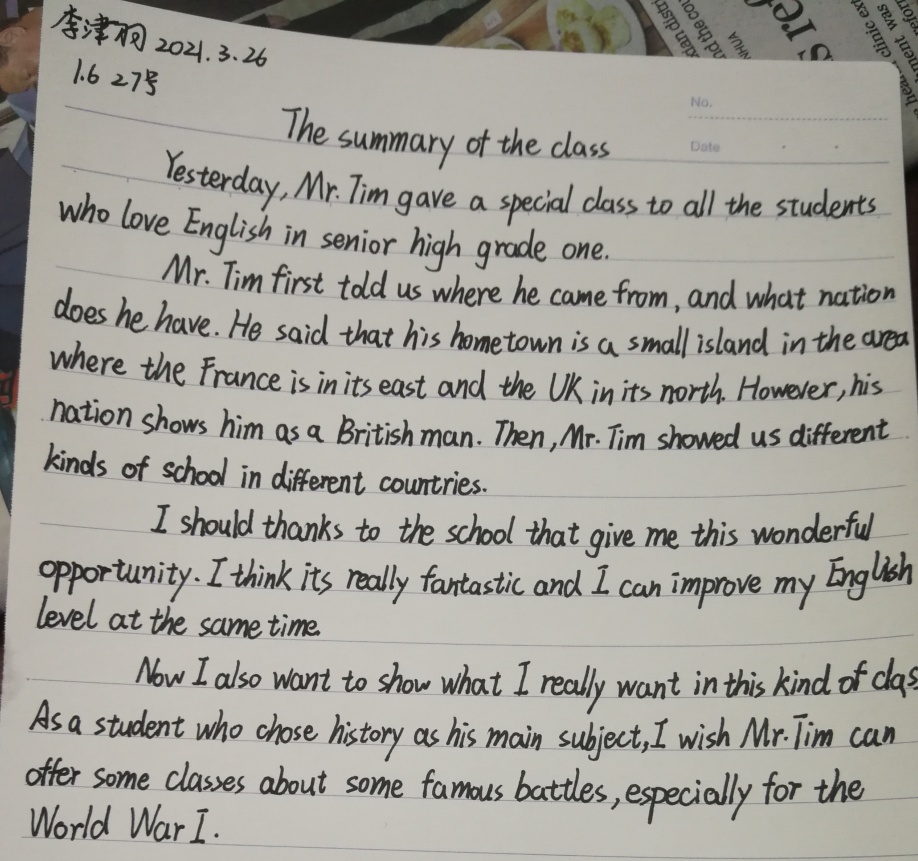 李津羽 2021.3.26
1.6 27号
No.
Date
The summary of the class
Yesterday, Mr. Tim gave a special class to all the students
who love English in senior high grade one.
Mr. Tim first told us where he came from, and what nation
does he have. He said that his hometown is a small island in the area
where the France is in its east and the UK in its north. However, his
nation shows him as a British man. Then, Mr. Tim showed us different
kinds of school in different countries.
I should thanks to the school that give me this wonderful
opportunity. I think its really fantastic and I can improve my English
level at the same time.
Now I also want to show what I really want in this kind of clas
As a student who chose history as his main subject, I wish Mr. Tim can
offer some classes about some famous battles, especially for the
World War I.